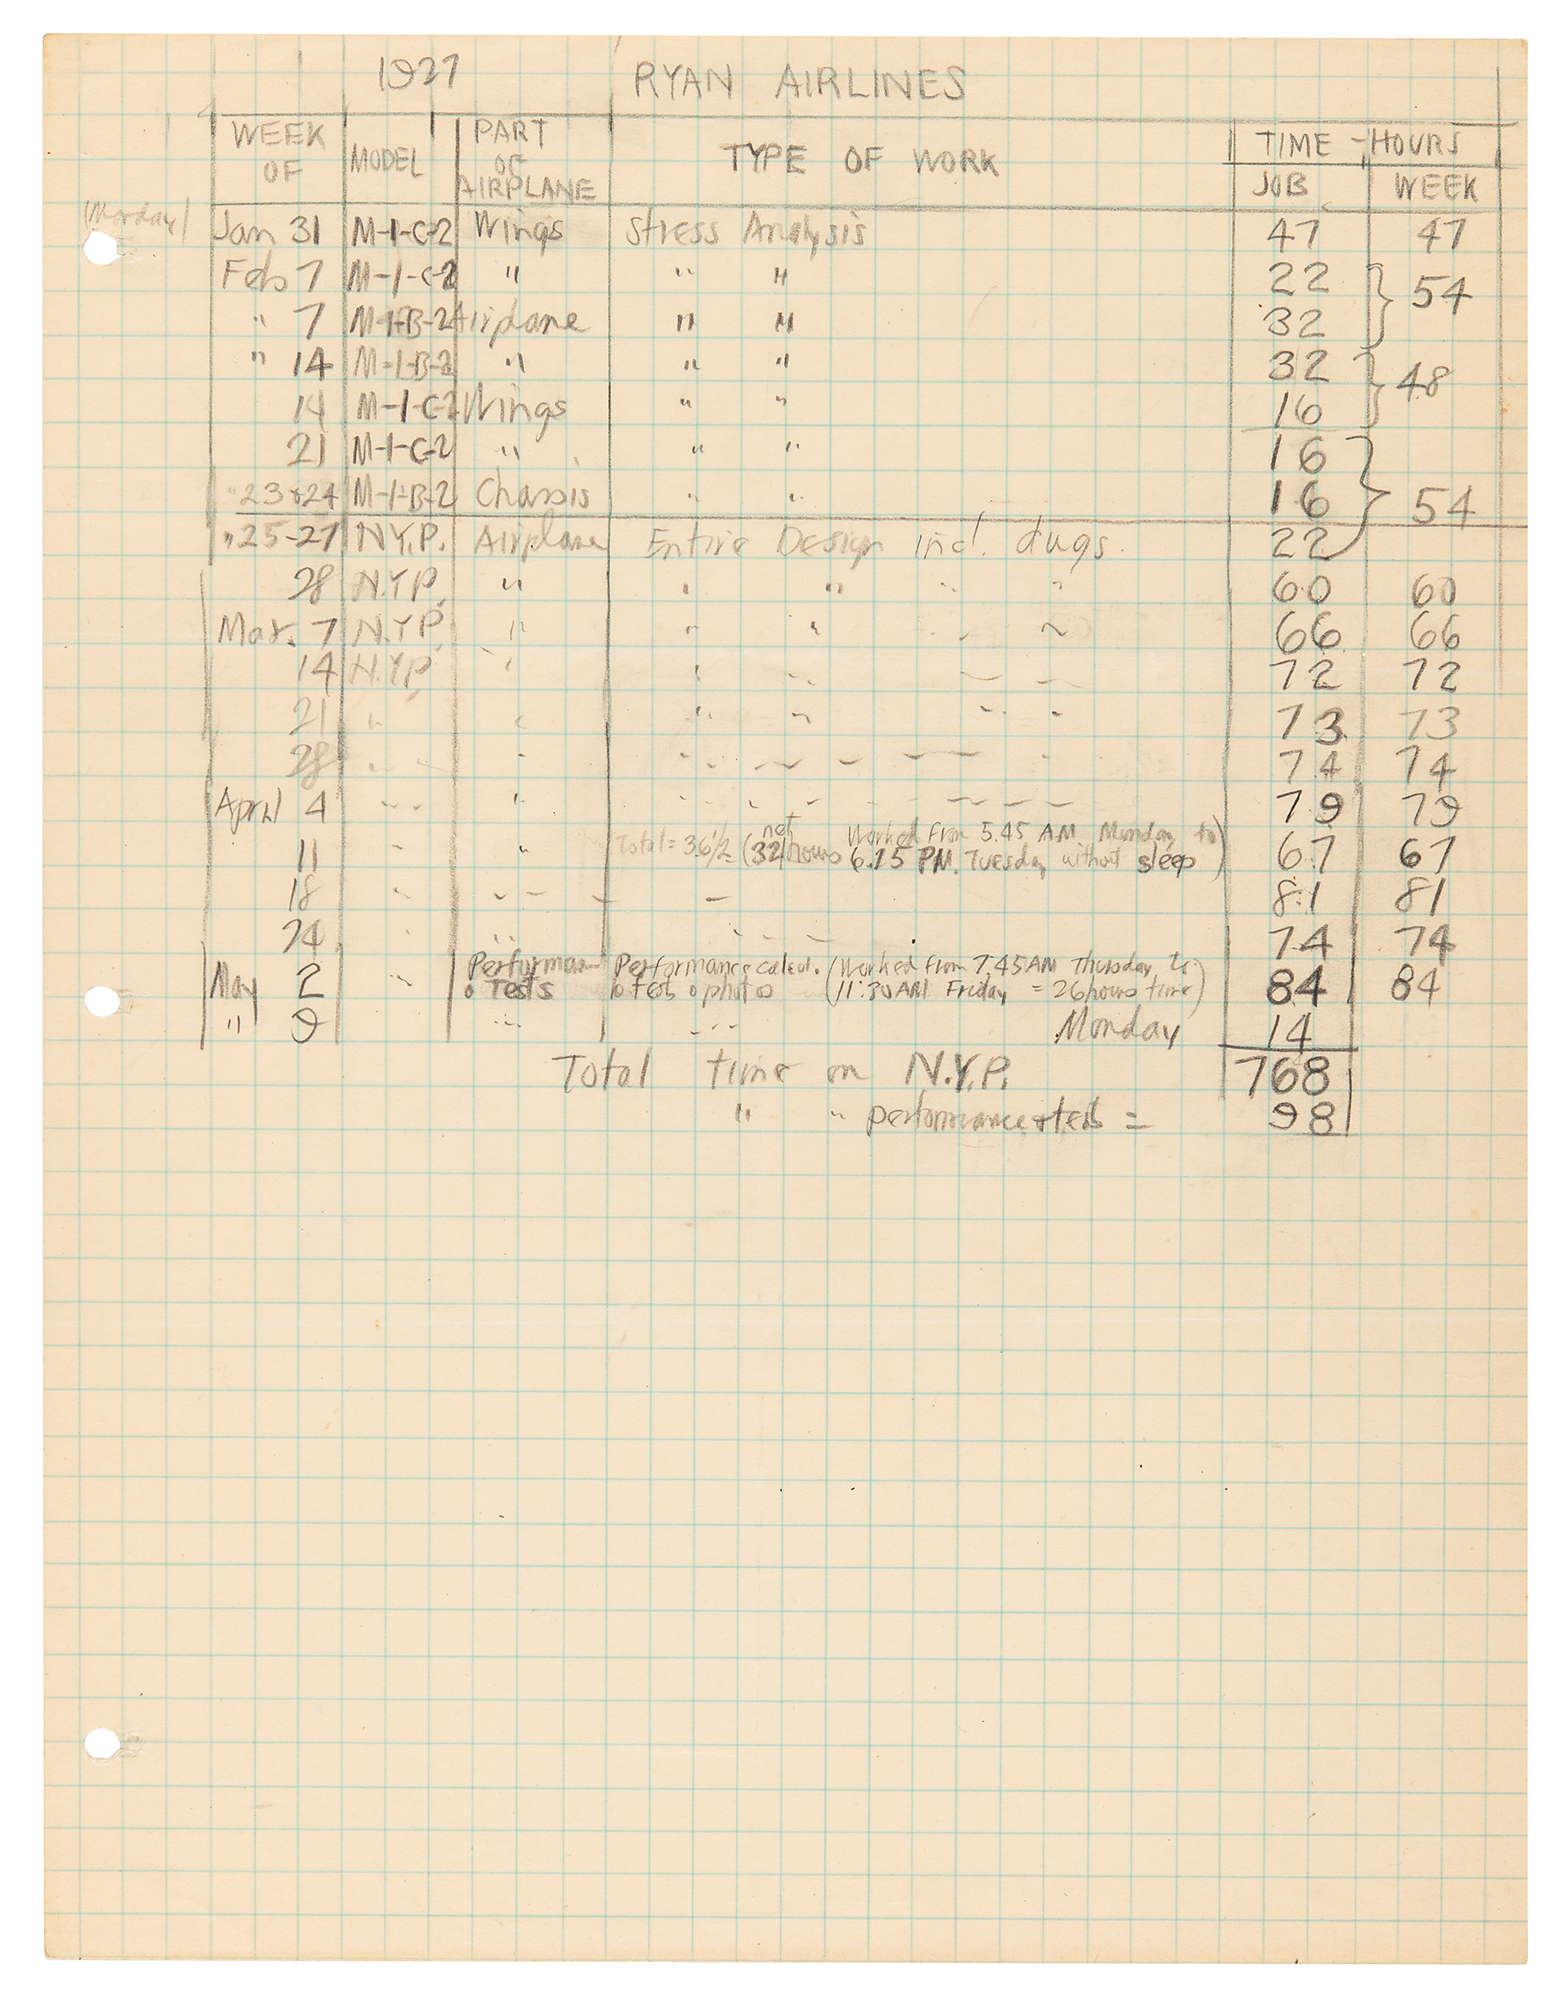 1927 RYAN AIRLINES
WEEK OF MODEL PART OF AIRPLANE TYPE OF WORK TIME - HOURS
JOB WEEK
(Monday) Jan 31 M-1-C-2 Wings Stress Analysis 47 47
Feb 7 M-1-C-2 " " " 22
54
" 7 M-1-B-2 Airplane " " 32
" 14 M-1-B-2 " " " 32
48
14 M-1-C-2 Wings " " 16
21 M-1-C-2 " " " 16
" 23 & 24 M-1-B-2 Chassis " " 16 54
" 25-27 N.Y.P. Airplane Entire Design incl. dwgs. 22
28 N.Y.P. " " " " " 60 60
Mar. 7 N.Y.P. " " " " " 66 66
14 N.Y.P. " " " " " 72 72
21 " " " " " " 73 73
28 " " " " " " 74 74
April 4 " " " " " " 79 79
Total = 36 1/2 (32 not hours Worked from 5.45 A.M. Monday to
11 " " 6.15 PM. Tuesday without sleep) 67 67
18 " " " " 81 81
24 " " " " " 74 74
Performan Performance calcul. (Worked from 7.45 AM Thursday to
May 2 " & Tests & tests & photos (11:30 AM Friday = 26 hours time) 84 84
" 9 " " Monday 14
Total time on N.Y.P. 768
" " performance & tests = 98